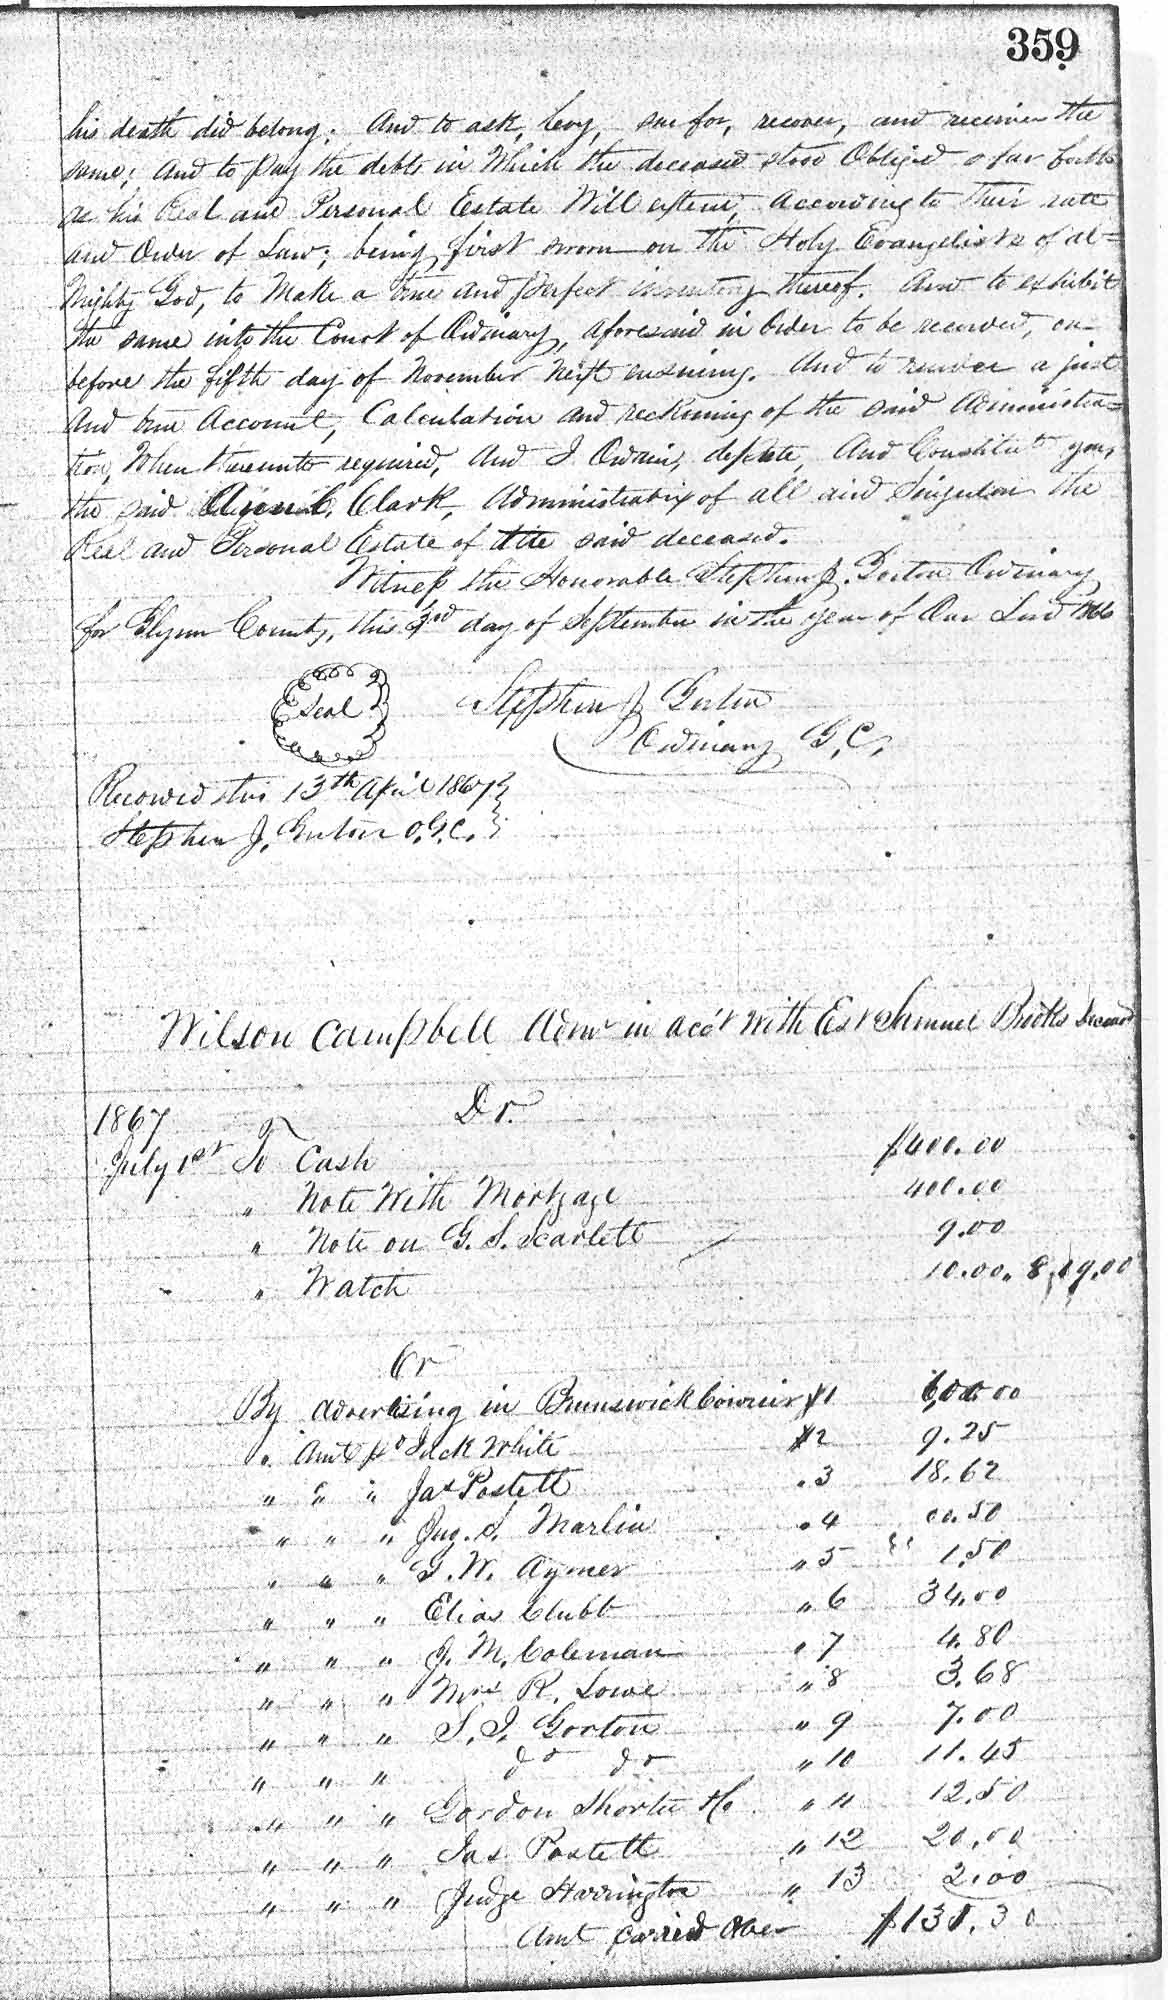 359
his death did belong. And to ask, levy, sue for, recover, and receive the
same; And to pay the debts in Which the deceased stood Obliged so far forth
as his Real and Personal Estate Will extend, According to Their rate
and Order of Law; being first sworn on the Holy Evangelists of al=
Mighty God, to Make a true and Perfect inventory thereof. And to exhibit
the same into the Court of Ordinary, aforesaid in Order to be recorded, on
before the fifth day of November Next ensuing. And to render a just
And true Account, Calculation and reckoning of the said Administra=
tion, When thereunto required, And I Ordain, depute, And Constitute you,
the said Clark, Administratrix of all and Singular the
Real and Personal Estate of the said deceased.
Witness the Honorable Stephen J. Gorton Ordinary
for Glynn County, this 3rd day of September in the year of Our Lord 1866
Seal
Stephen J Gorton
Ordinary G.C.
Recorded this 13th April 1867
Stephen J. Gorton O.G.C.
Wilson Campbell Admr in acct With Est Samuel Brooks deceased
Dr.
1867
July 1st To Cash $400.00
" Note With Mortgage 400.00
" Note on G. S. Scarlett 9.00
" Watch 10.00. 819.00
Cr
By advertising in Brunswick Courier $1 00
" Amt pd Jack White $2 9.25
" " " Jas Postell " 3 18.62
" " " Jng. S. Marlin " 4 .50
" " " G. W. Aymer " 5 " 1.50
" " " Elias Clubb " 6 34.00
" " " J. M. Coleman " 7 4.80
" " " Mrs R. Lowe " 8 3.68
" " " S. J. Gorton " 9 7.00
" " " do do " 10 11.45
" " " Gordon Shorter " 11 12.50
" " " Jas Postell " 12 20.00
" " " Judge Harrington " 13 2.00
Amt carried Over $131.30